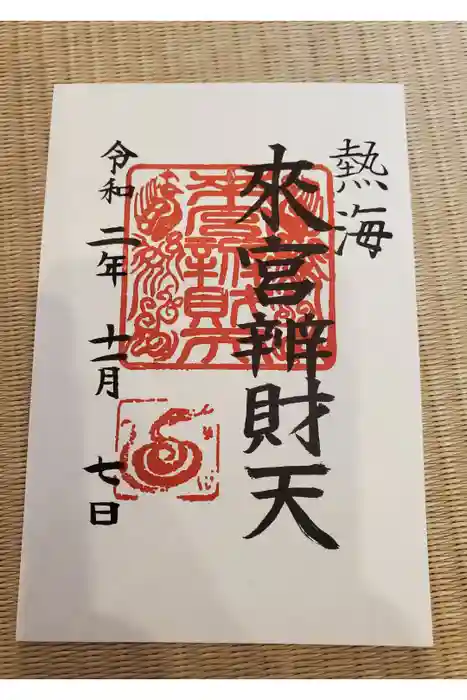 熱海
來宮辨財天
令和二年十一月七日